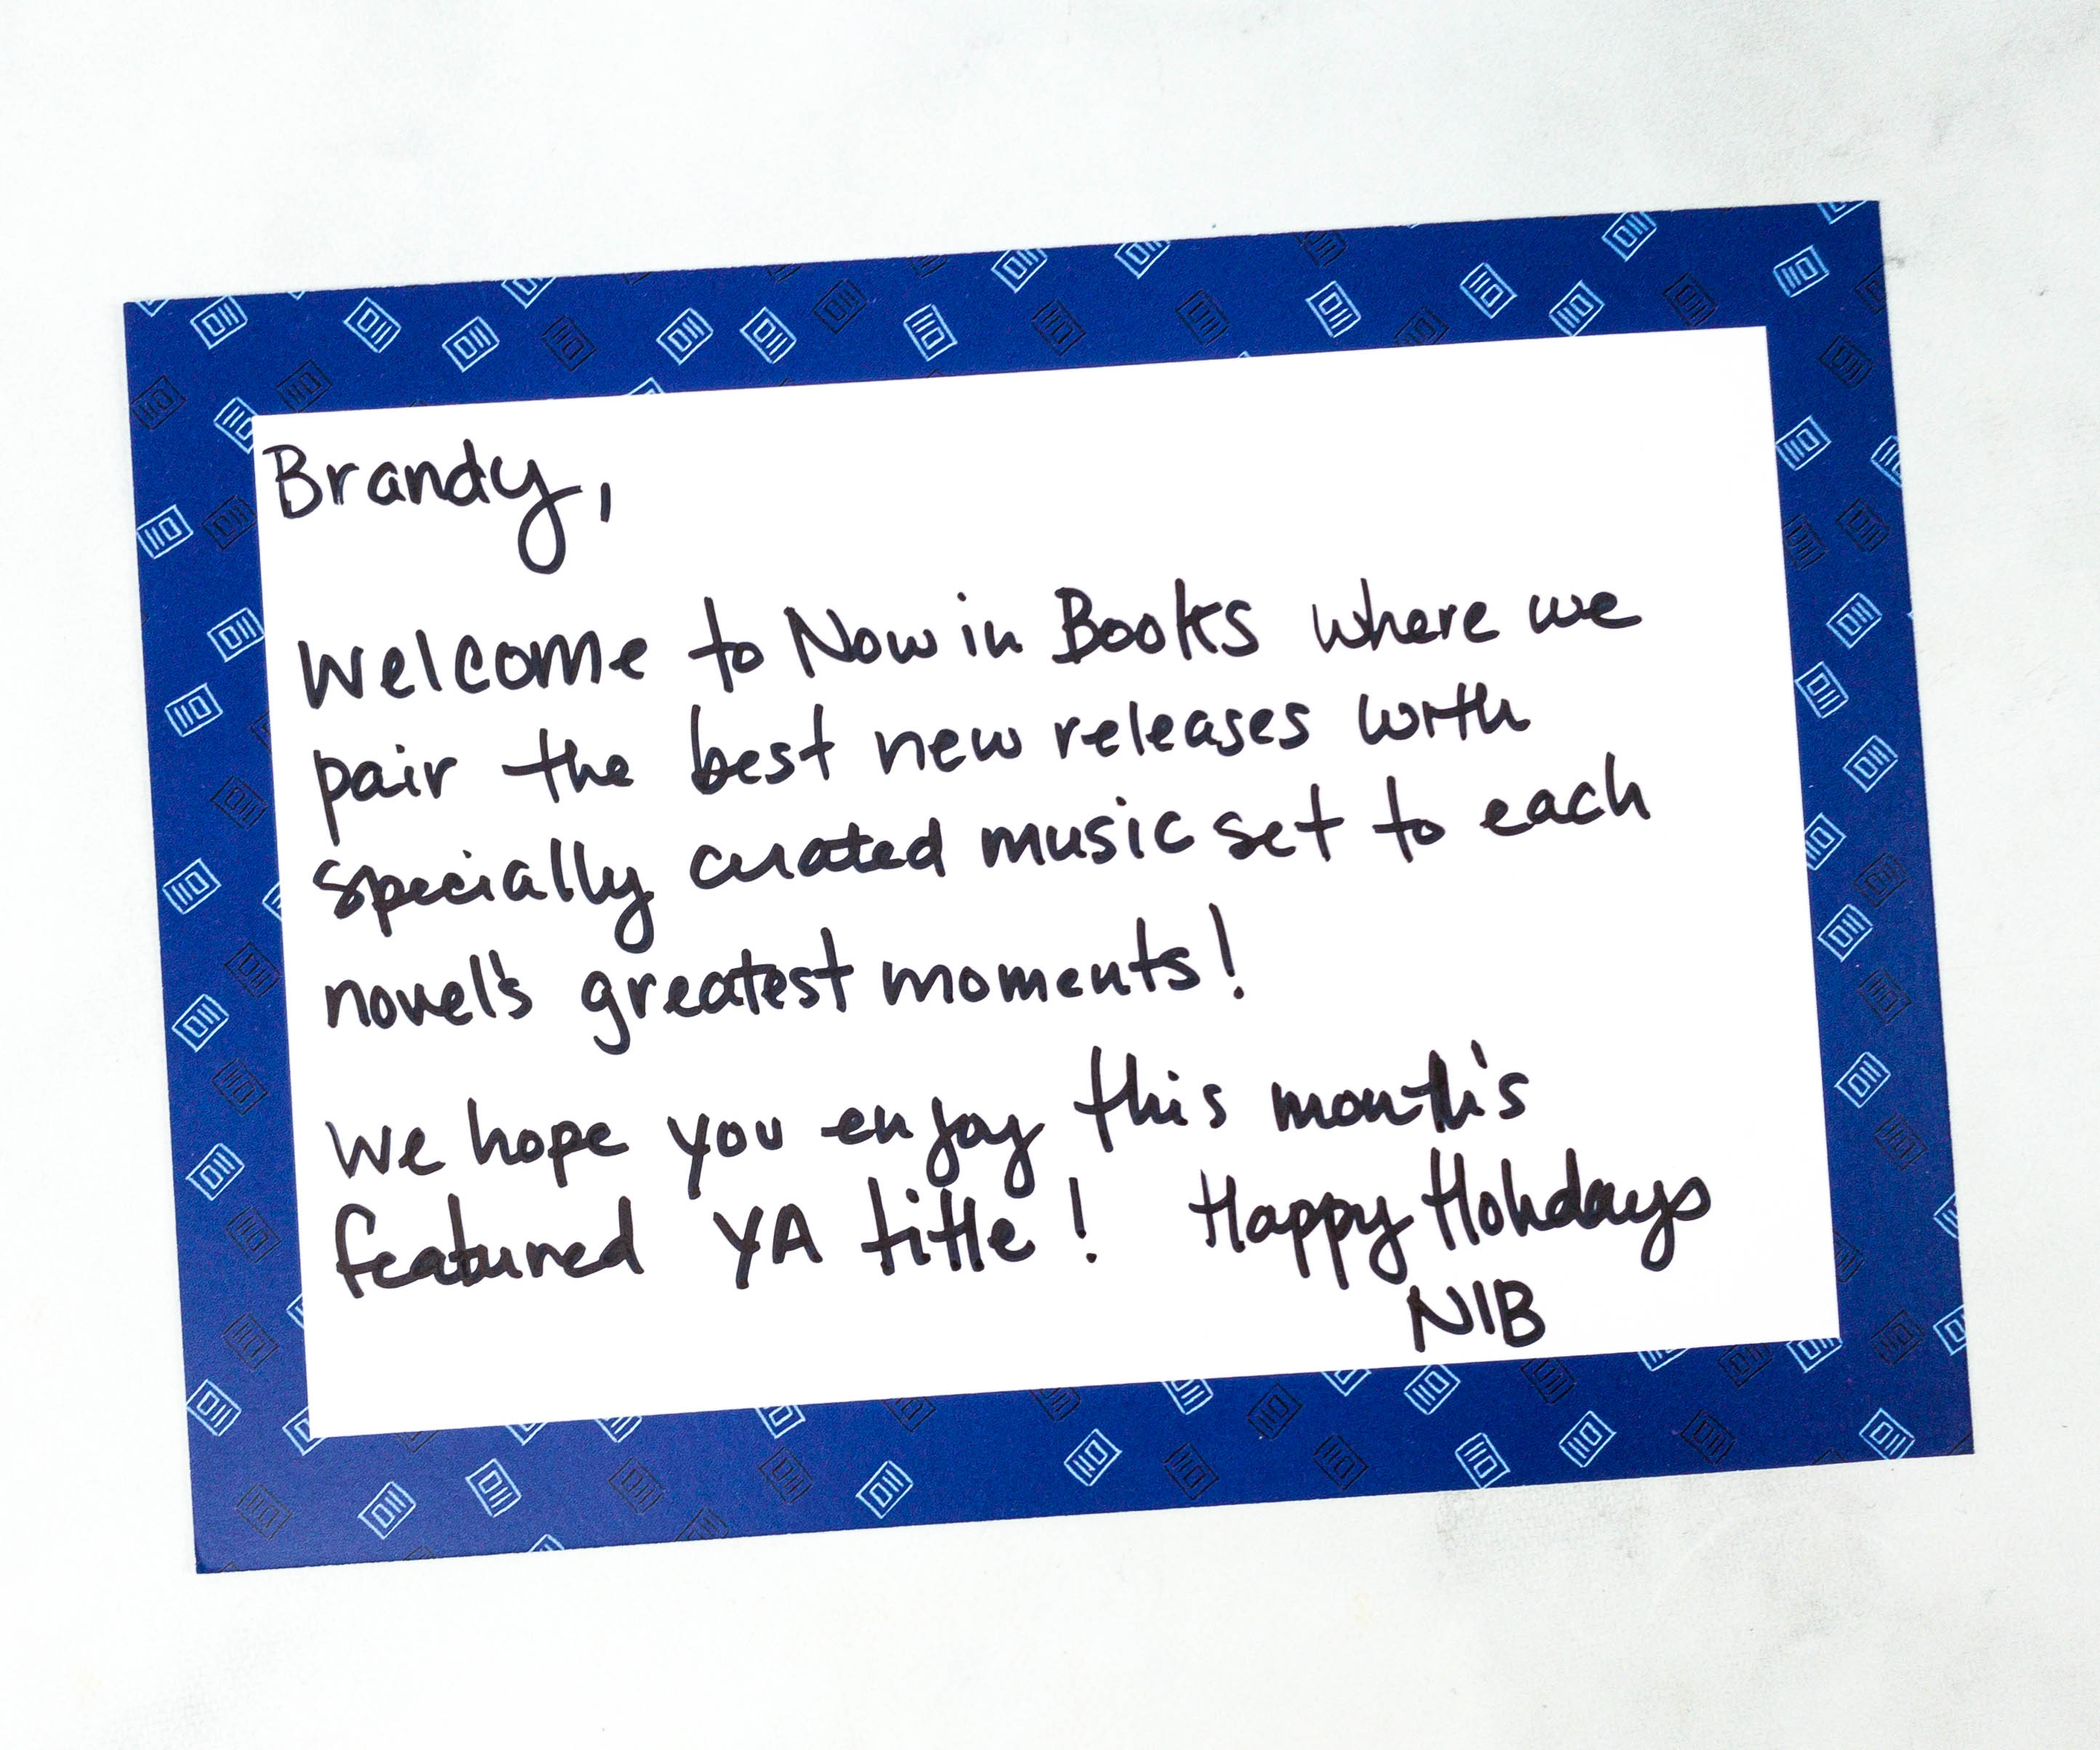 Brandy,
Welcome to Now in Books where we
pair the best new releases with
specially curated music set to each
novel's greatest moments!
We hope you enjoy this month's
featured YA title! Happy Holidays
NIB